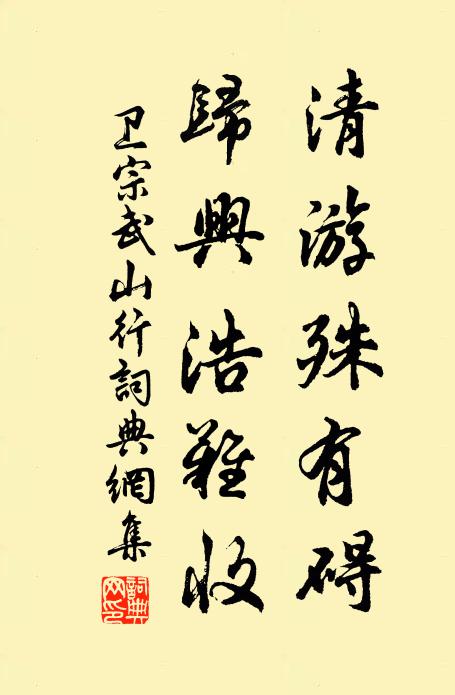 清游殊有碍
歸興浩難收
卫宗武山行詞典網集
詞典网印